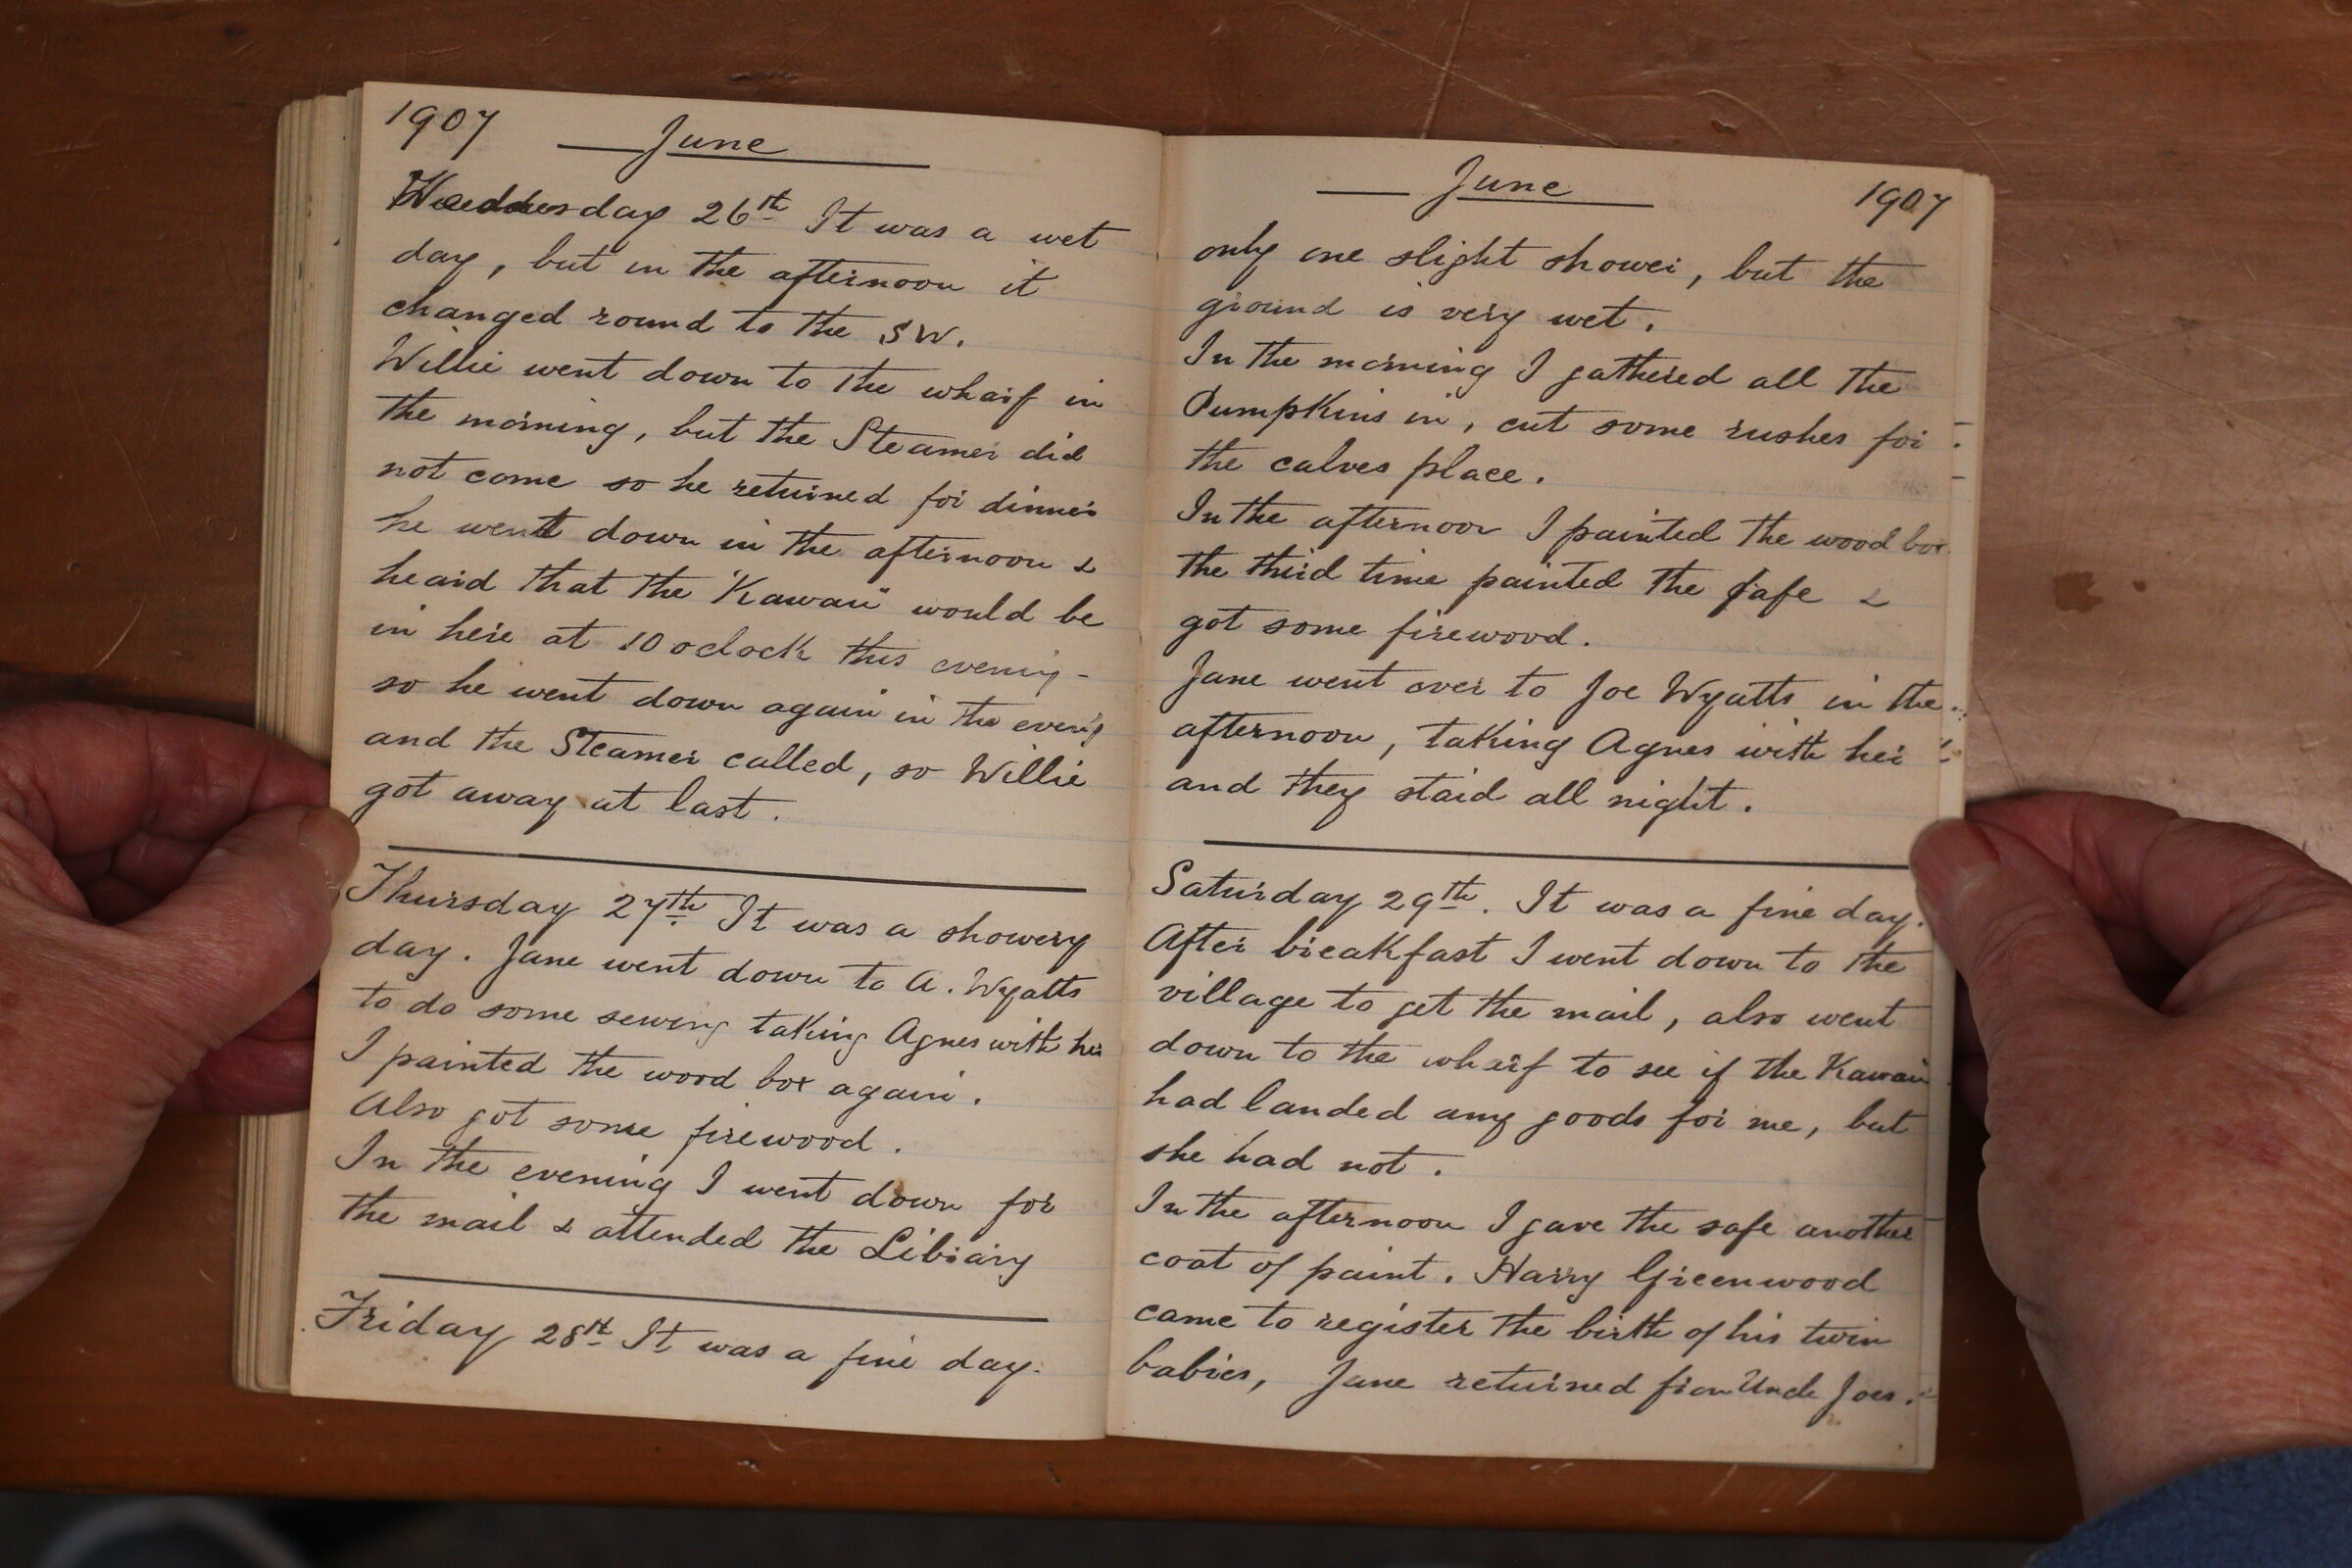 1907
June
Weddnesday 26th It was a wet
day, but in the afternoon it
changed round to the SW.
Willie went down to the wharf in
the morning, but the Steamer did
not come so he returned for dinner
he went down in the afternoon &
heard that the "Kawau" would be
in here at 10 oclock this evening -
so he went down again in the evening
and the Steamer called, so Willie
got away at last.
Thursday 27th It was a showery
day. Jane went down to A. Wyatts
to do some sewing taking Agnes with her
I painted the wood box again.
Also got some firewood.
In the evening I went down for
the mail & attended the Library
Friday 28th It was a fine day.
June
1907
only one slight shower, but the
ground is very wet.
In the morning I gathered all the
Pumpkins in, cut some rushes for
the calves place.
In the afternoon I painted the wood box
the third time painted the safe &
got some firewood.
Jane went over to Joe Wyatts in the
afternoon, taking Agnes with her
and they staid all night.
Saturday 29th. It was a fine day.
After breakfast I went down to the
village to get the mail, also went
down to the wharf to see if the Kawau
had landed any goods for me, but
she had not.
In the afternoon I gave the safe another
coat of paint. Harry Greenwood
came to register the birth of his twin
babies, Jane returned from Uncle Joes.